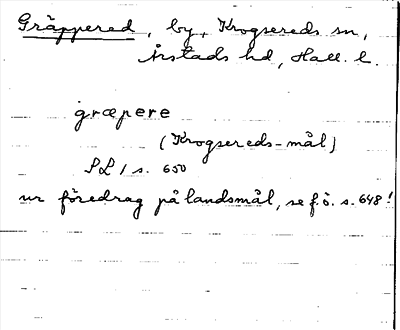 Gräppered, by, Krogsereds sn,
Årstads hd, Hall. l.
græpere
(Krogsereds-mål)
SL 1 s. 650
ur föredrag på landsmål, se f.ö. s. 648!